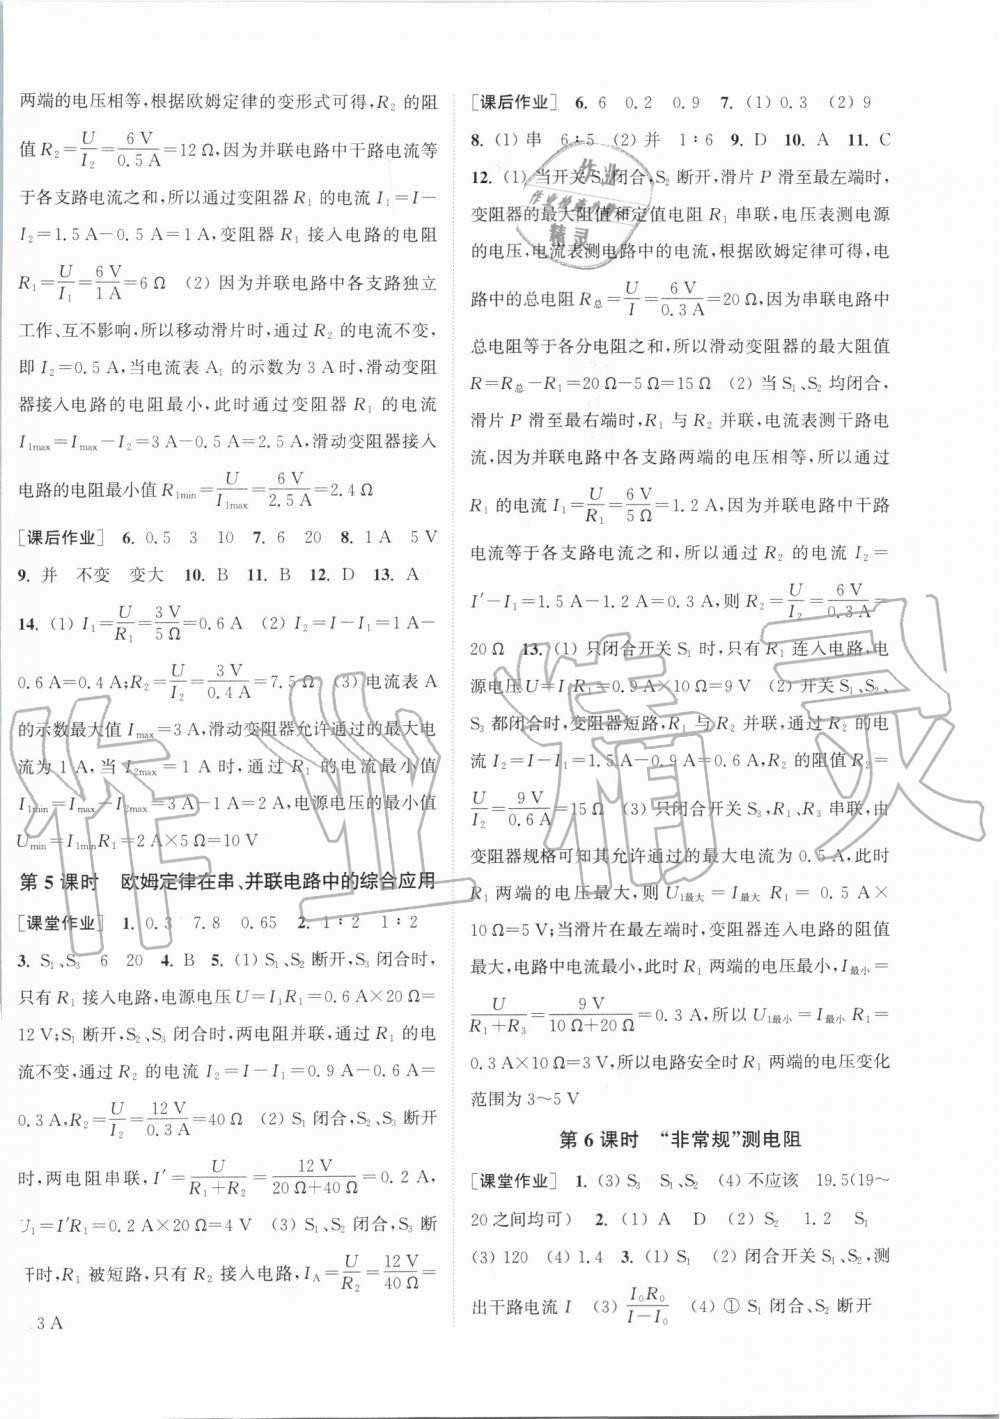 两端的电压相等,根据欧姆定律的变形式可得,R₂ 的阻
值 R₂=U/I₂=6 V/0.5 A=12 Ω,因为并联电路中干路电流等
于各支路电流之和,所以通过变阻器 R₁ 的电流 I₁=I-
I₂=1.5 A-0.5 A=1 A,变阻器 R₁ 接入电路的电阻
R₁=U/I₁=6 V/1 A=6 Ω (2) 因为并联电路中各支路独立
工作、互不影响,所以移动滑片时,通过 R₂ 的电流不变,
即 I₂=0.5 A,当电流表 A₁ 的示数为 3 A 时,滑动变阻
器接入电路的电阻最小,此时通过变阻器 R₁ 的电流
I₁max=Imax-I₂=3 A-0.5 A=2.5 A,滑动变阻器接入
电路的电阻最小值 R₁min=U/I₁max=6 V/2.5 A=2.4 Ω
[课后作业] 6. 0.5 3 10 7. 6 20 8. 1 A 5 V
9. 并 不变 变大 10. B 11. B 12. D 13. A
14. (1) I₁=U/R₁=3 V/5 Ω=0.6 A (2) I₂=I-I₁=1 A-
0.6 A=0.4 A;R₂=U/I₂=3 V/0.4 A=7.5 Ω (3) 电流表 A
的示数最大值 Imax=3 A,滑动变阻器允许通过的最大电
流为 1 A,当 I₂max=1 A 时,通过 R₁ 的电流最小值
I₁min=Imax-I₂max=3 A-1 A=2 A,电源电压的最小值
Umin=I₁minR₁=2 A×5 Ω=10 V
第 5 课时 欧姆定律在串、并联电路中的综合应用
[课堂作业] 1. 0.3 7.8 0.65 2. 1∶2 1∶2
3. S₁、S₃ 6 20 4. B 5. (1) S₁、S₂ 断开,S₃ 闭合时,
只有 R₁ 接入电路,电源电压 U=I₁R₁=0.6 A×20 Ω=
12 V;S₁ 断开、S₂、S₃ 闭合时,两电阻并联,通过 R₁ 的电
流不变,通过 R₂ 的电流 I₂=I-I₁=0.9 A-0.6 A=
0.3 A,R₂=U/I₂=12 V/0.3 A=40 Ω (2) S₁ 闭合,S₂、S₃ 断开
时,两电阻串联,I′=U/(R₁+R₂)=12 V/(20 Ω+40 Ω)=0.2 A,
U₁=I′R₁=0.2 A×20 Ω=4 V (3) S₁、S₂ 闭合,S₃ 断
开时,R₁ 被短路,只有 R₂ 接入电路,I_A=U/R₂=12 V/40 Ω=
.3 A
[课后作业] 6. 6 0.2 0.9 7. (1) 0.3 (2) 9
8. (1) 串 6∶5 (2) 并 1∶6 9. D 10. A 11. C
12. (1) 当开关 S₁ 闭合,S₂ 断开,滑片 P 滑至最左端时,
变阻器的最大阻值和定值电阻 R₁ 串联,电压表测电源
的电压,电流表测电路中的电流,根据欧姆定律可得,电
路中的总电阻 R总=U/I=6 V/0.3 A=20 Ω,因为串联电路中
总电阻等于各分电阻之和,所以滑动变阻器的最大阻值
R=R总-R₁=20 Ω-5 Ω=15 Ω (2) 当 S₁、S₂ 均闭合,
滑片 P 滑至最右端时,R₁ 与 R₂ 并联,电流表测干路电
流,因为并联电路中各支路两端的电压相等,所以通过
R₁ 的电流 I₁=U/R₁=6 V/5 Ω=1.2 A,因为并联电路中干路
电流等于各支路电流之和,所以通过 R₂ 的电流 I₂=
I′-I₁=1.5 A-1.2 A=0.3 A,则 R₂=U/I₂=6 V/0.3 A=
20 Ω 13. (1) 只闭合开关 S₁ 时,只有 R₁ 连入电路,电
源电压 U=I₁R₁=0.9 A×10 Ω=9 V (2) 开关 S₁、S₂、
S₃ 都闭合时,变阻器短路,R₁ 与 R₂ 并联,通过 R₂ 的电
流 I₂=I-I₁=1.5 A-0.9 A=0.6 A,R₂ 的阻值 R₂=
U/I₂=9 V/0.6 A=15 Ω (3) 只闭合开关 S₂,R₁、R₃ 串联,由
变阻器规格可知其允许通过的最大电流为 0.5 A,此时
R₁ 两端的电压最大,则 U₁最大=I最大R₁=0.5 A×
10 Ω=5 V;当滑片在最左端时,变阻器连入电路的阻值
最大,电路中电流最小,此时 R₁ 两端的电压最小,I最小=
U/(R₁+R₃)=9 V/(10 Ω+20 Ω)=0.3 A,所以 U₁最小=I最小R₁=
0.3 A×10 Ω=3 V,所以电路安全时 R₁ 两端的电压变化
范围为 3~5 V
第 6 课时 “非常规”测电阻
[课堂作业] 1. (3) S₃ S₁、S₂ (4) 不应该 19.5(19~
20 之间均可) 2. (1) A D (2) S₂ 1.2 S₁
(3) 120 (4) 1.4 3. (1) S₁ (2) 闭合开关 S₁、S₂,测
出干路电流 I (3) I₀R₀/(I-I₀) (4) ① S₁ 闭合、S₂ 断开
作业精灵